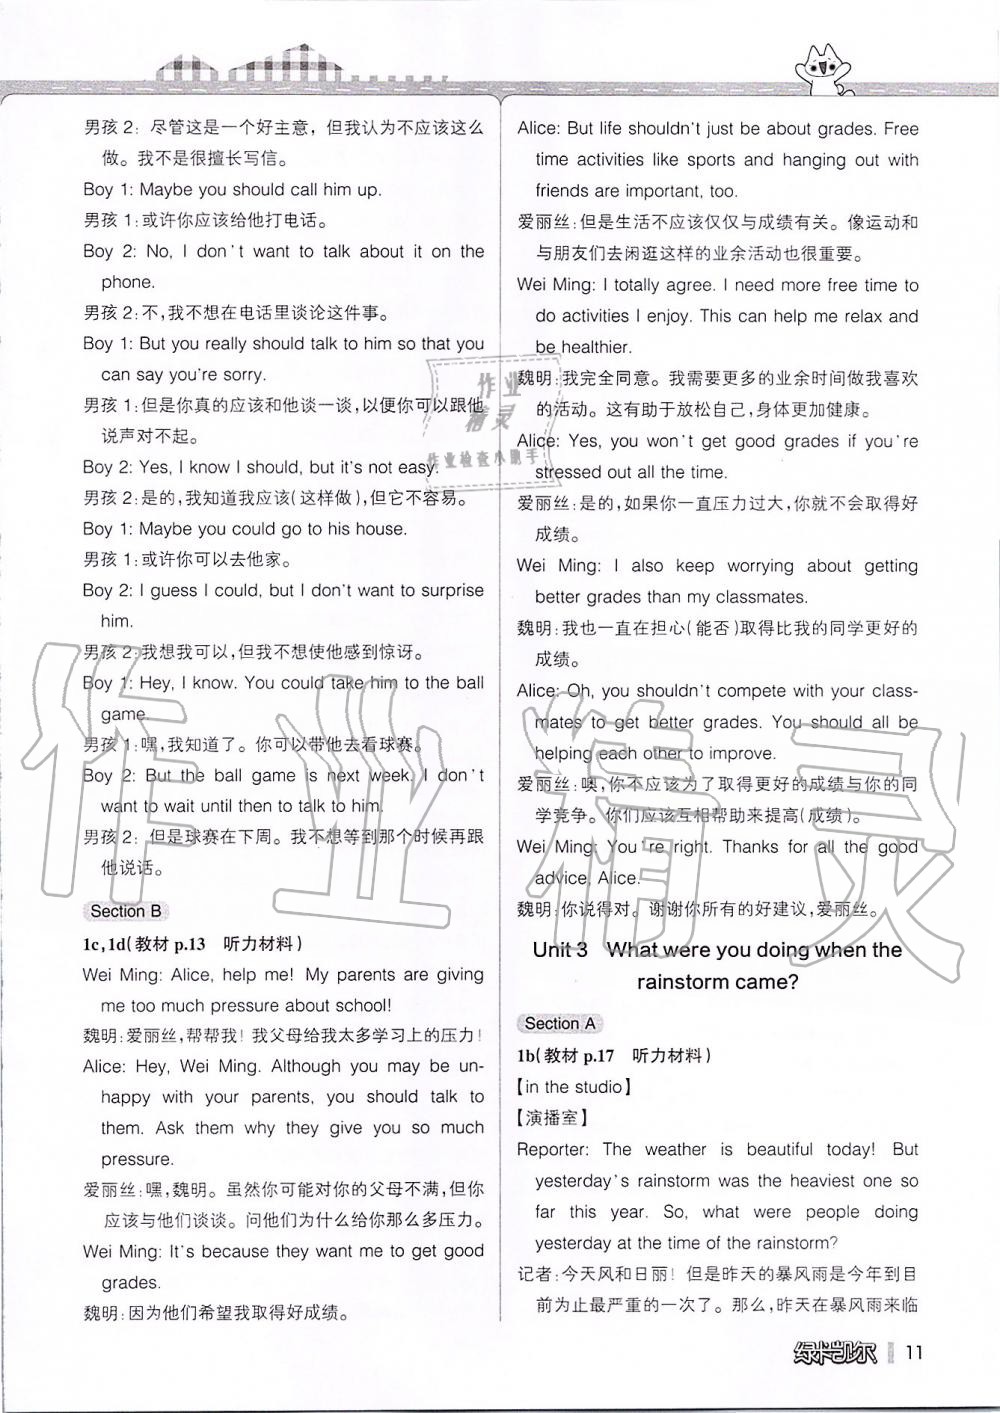 男孩 2: 尽管这是一个好主意，但我认为不应该这么
做。我不是很擅长写信。
Boy 1: Maybe you should call him up.
男孩 1:或许你应该给他打电话。
Boy 2: No, I don't want to talk about it on the
phone.
男孩 2:不,我不想在电话里谈论这件事。
Boy 1: But you really should talk to him so that you
can say you're sorry.
男孩 1:但是你真的应该和他谈一谈,以便你可以跟他
说声对不起。
Boy 2: Yes, I know I should, but it's not easy.
男孩 2:是的,我知道我应该(这样做),但它不容易。
Boy 1: Maybe you could go to his house.
男孩 1:或许你可以去他家。
Boy 2: I guess I could, but I don't want to surprise
him.
男孩 2:我想我可以,但我不想使他感到惊讶。
Boy 1: Hey, I know. You could take him to the ball
game.
男孩 1:嘿,我知道了。你可以带他去看球赛。
Boy 2: But the ball game is next week. I don't
want to wait until then to talk to him.
男孩 2: 但是球赛在下周。我不想等到那个时候再跟
他说话。
Section B
1c,1d(教材 p.13 听力材料)
Wei Ming: Alice, help me! My parents are giving
me too much pressure about school!
魏明:爱丽丝,帮帮我! 我父母给我太多学习上的压力!
Alice: Hey, Wei Ming. Although you may be un-
happy with your parents, you should talk to
them. Ask them why they give you so much
pressure.
爱丽丝:嘿,魏明。虽然你可能对你的父母不满,但你
应该与他们谈谈。问他们为什么给你那么多压力。
Wei Ming: It's because they want me to get good
grades.
魏明:因为他们希望我取得好成绩。
Alice: But life shouldn't just be about grades. Free
time activities like sports and hanging out with
friends are important, too.
爱丽丝:但是生活不应该仅仅与成绩有关。像运动和
与朋友们去闲逛这样的业余活动也很重要。
Wei Ming: I totally agree. I need more free time to
do activities I enjoy. This can help me relax and
be healthier.
魏明:我完全同意。我需要更多的业余时间做我喜欢
的活动。这有助于放松自己,身体更加健康。
Alice: Yes, you won't get good grades if you're
stressed out all the time.
爱丽丝:是的,如果你一直压力过大,你就不会取得好
成绩。
Wei Ming: I also keep worrying about getting
better grades than my classmates.
魏明:我也一直在担心(能否)取得比我的同学更好的
成绩。
Alice: Oh, you shouldn't compete with your class-
mates to get better grades. You should all be
helping each other to improve.
爱丽丝:噢,你不应该为了取得更好的成绩与你的同
学竞争。你们应该互相帮助来提高(成绩)。
Wei Ming: You're right. Thanks for all the good
advice, Alice.
魏明:你说得对。谢谢你所有的好建议,爱丽丝。
Unit 3 What were you doing when the
rainstorm came?
Section A
1b(教材 p.17 听力材料)
【in the studio】
【演播室】
Reporter: The weather is beautiful today! But
yesterday's rainstorm was the heaviest one so
far this year. So, what were people doing
yesterday at the time of the rainstorm?
记者:今天风和日丽! 但是昨天的暴风雨是今年到目
前为止最严重的一次了。那么,昨天在暴风雨来临
绿卡凯尔 11
作业
精灵
作业检查小助手
作业精灵